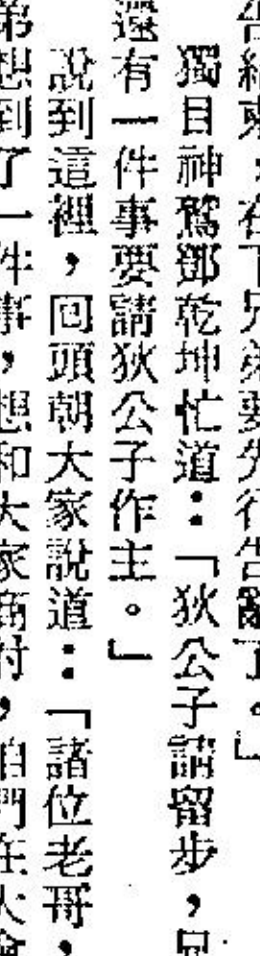 告結束，在下兄弟要先行告辭了。」
獨目神鷲鄧乾坤忙道：「狄公子請留步，兄
還有一件事要請狄公子作主。」
說到這裡，回頭朝大家說道：「諸位老哥，
弟想到了一件事，想和大家商討，咱們在大會